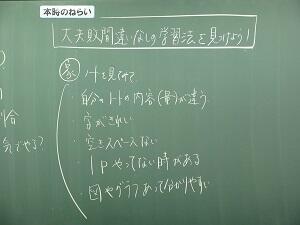 本時のねらい
大失敗間違いなしの学習法を見つけよう!
家 ノートを見てみて
・自分のノートの内容(量)が違う
・字がきれい
・空きスペースない
・1pやってない時がある
・図やグラフあって分かりやすい